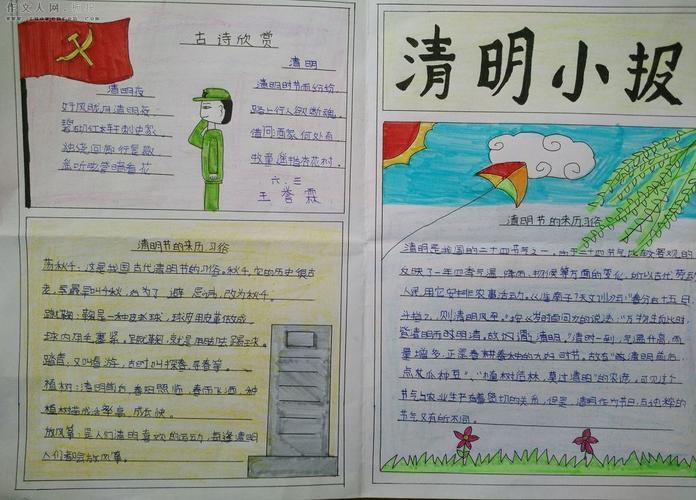 作文人网
古诗欣赏
清明夜
好风胧月清明夜
碧砌红轩刺史家
独绕回廊行复歇
遥听弦管暗看花
清明
清明时节雨纷纷
路上行人欲断魂。
借问酒家何处有
牧童遥指杏花村。
六.三
王誉霖
清明节的来历习俗
荡秋千:这是我国古代清明节的习俗。秋千,它的历史很古
老,最早叫千秋,后为了 避 忌讳,改为秋千。
蹴鞠:鞠是一种皮球,球皮用皮革做成
球内用毛塞紧。蹴鞠,就是用足去踢球。
踏青:又叫春游,古时叫探春、寻春等。
植树:清明前后,春阳照临,春雨飞洒,种
植树苗成活率高,成长快。
放风筝:是人们清明喜欢的运动,每逢清明
人们都会放风筝。
清明小报
清明节的来历习俗
清明是我国的二十四节气之一。由于二十四节气比较客观的
反映了一年四季气温、降雨、物候等方面的变化,所以古代劳动
人民用它安排农事活动。《淮南子·天文训》云:“春分后十五日
斗指乙,则清明风至。”按《岁时百问》的说法:“万物生长此时
皆清明而明清。故谓之清明。”清明一到,气温升高,雨
量增多,正是春耕春种的大好时节。故有“清明前后,
点瓜种豆”、“植树造林,莫过清明”的农谚。可见这个
节气与农业生产有着密切的关系。但是,清明作为节日,与纯粹的
节气又有所不同。